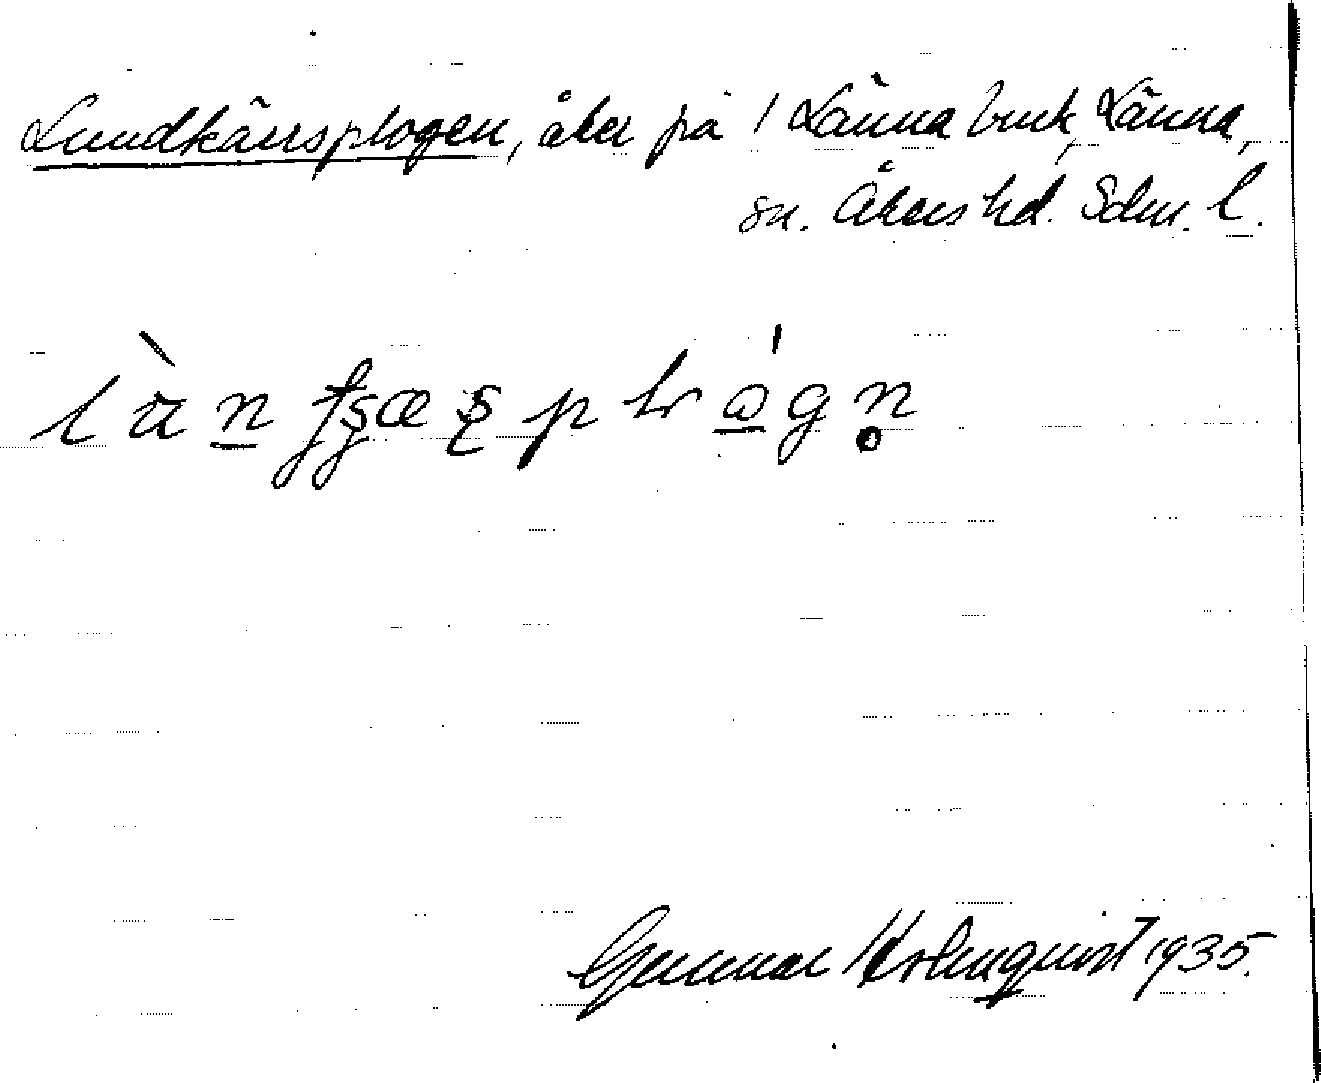 Lundkärrsplogen, åker på 1 Länna bruk, Länna,
sn. Åkers hd. Sdm. l.
Gunnar Holmquist 1935.